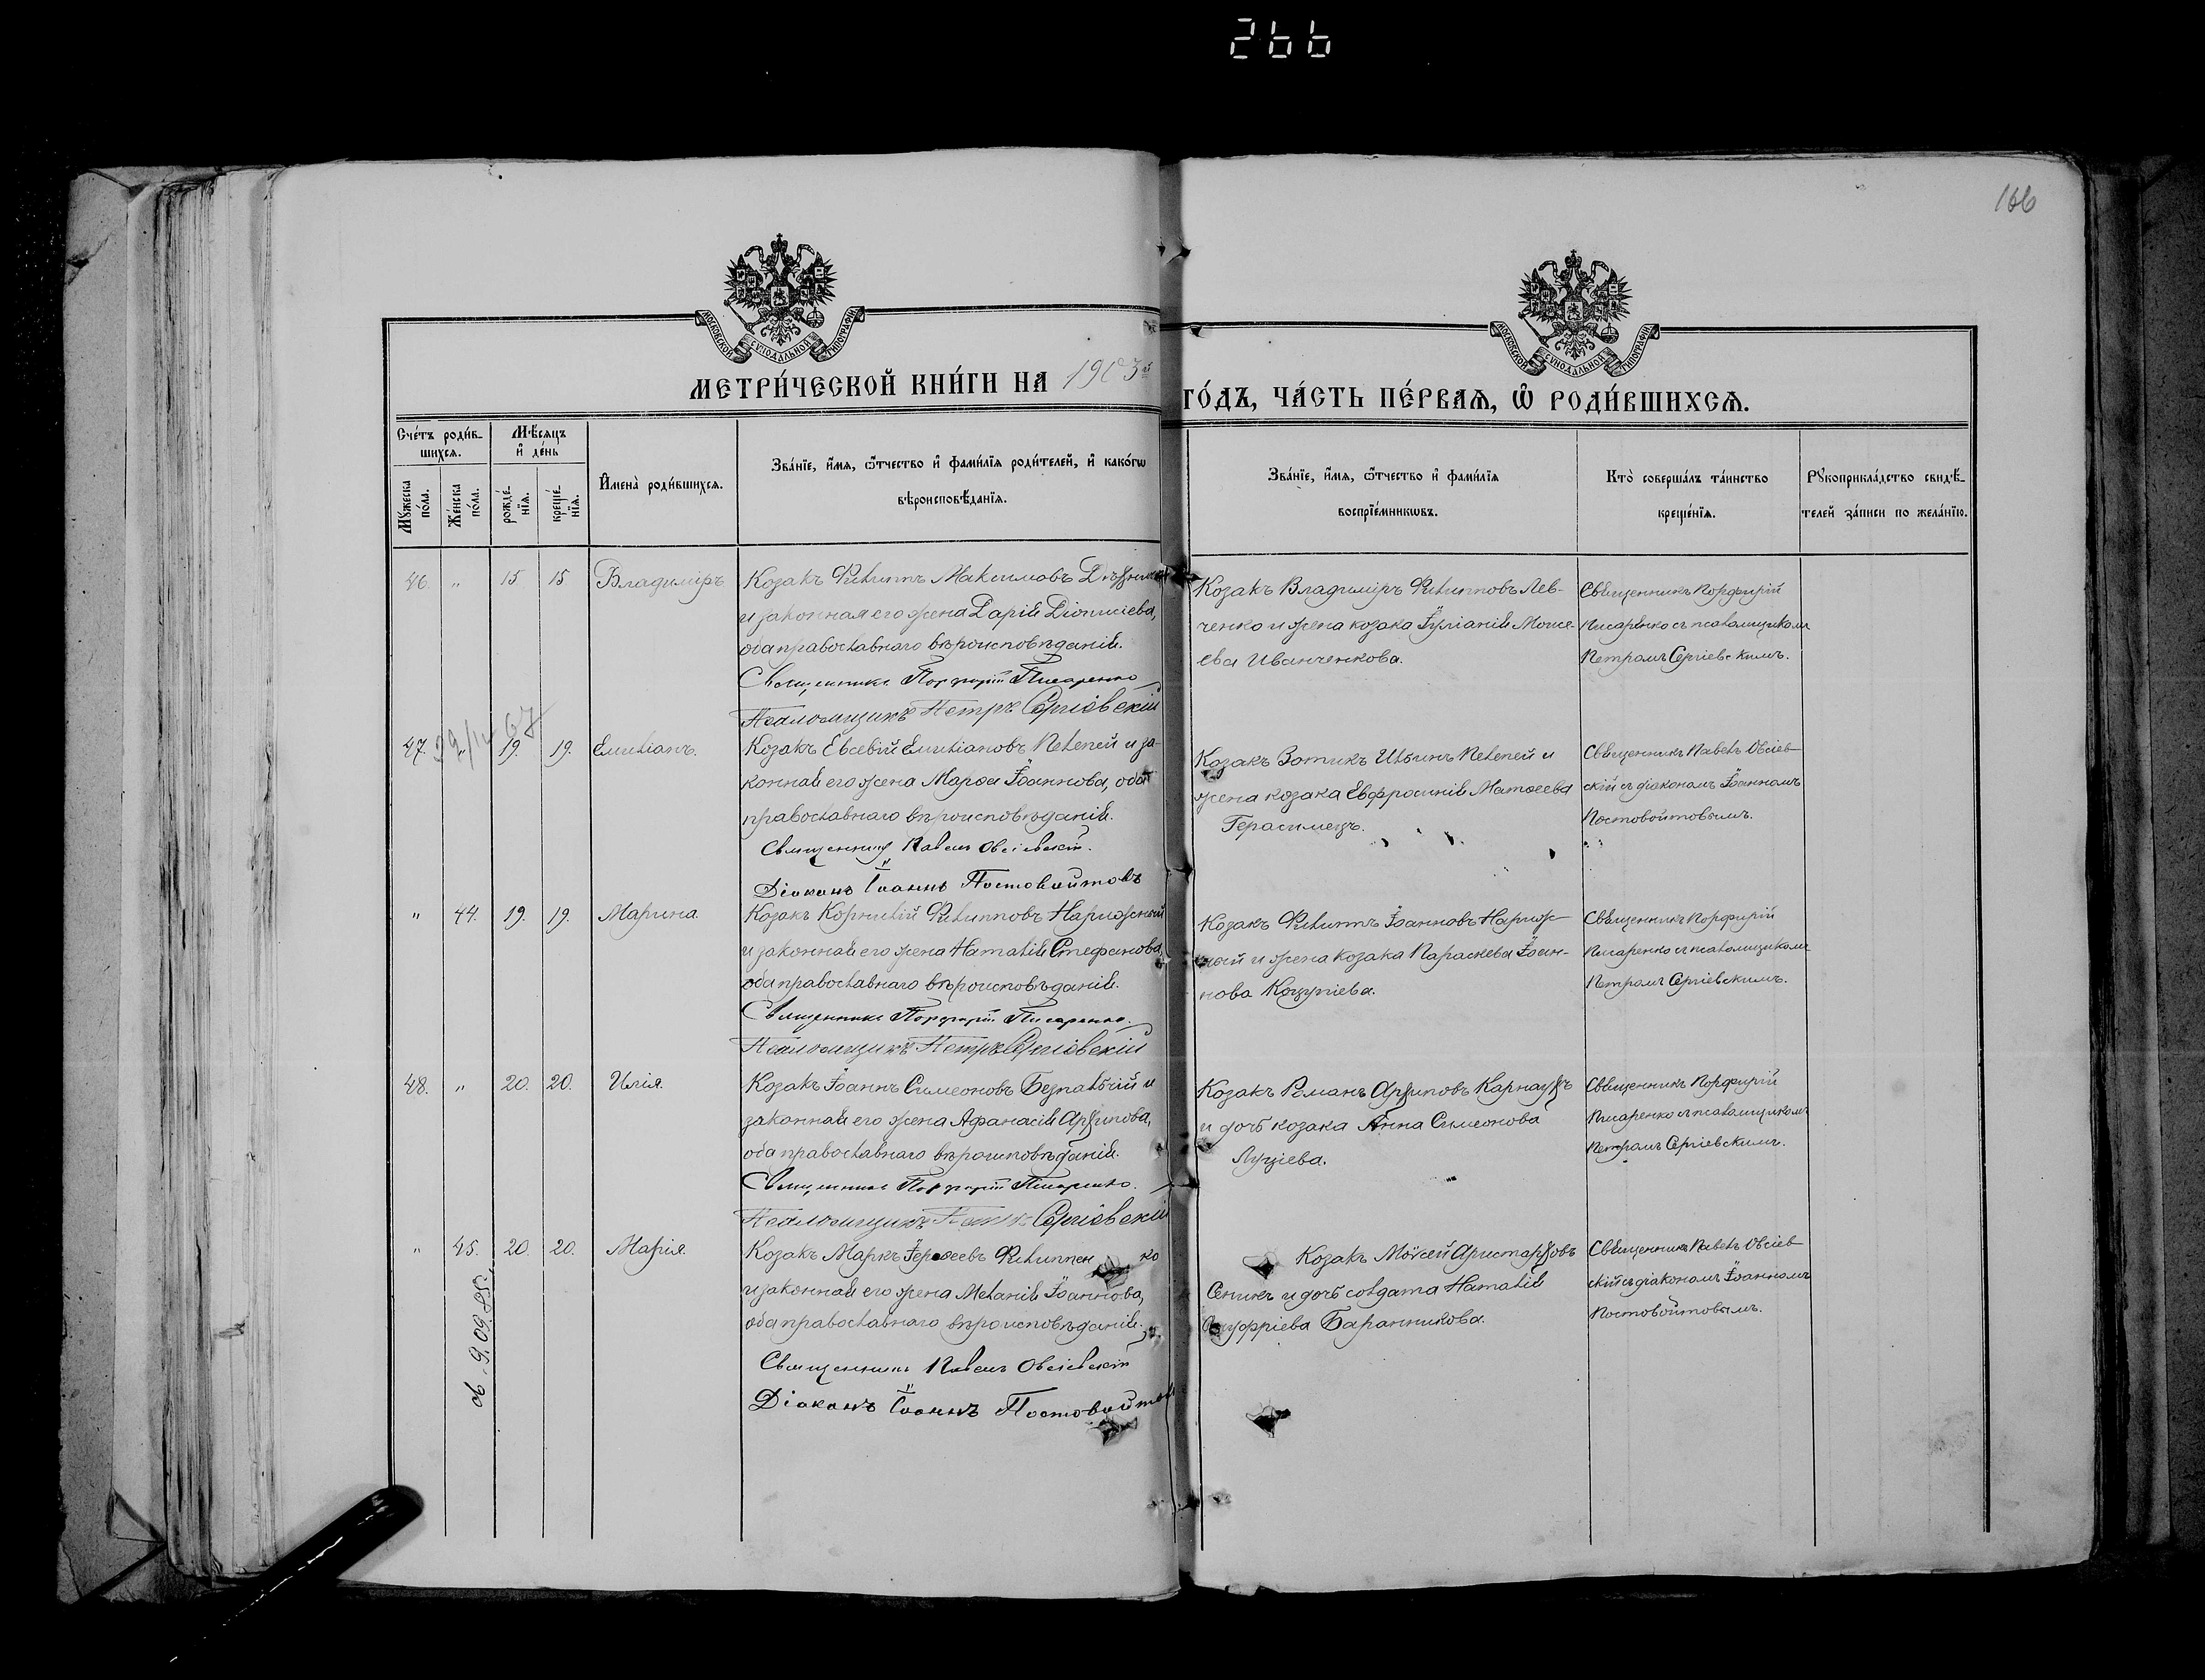 266
166
МОСКОВСКОЙ СѴНОДАЛЬНОЙ ТИПОГРАФІИ
МОСКОВСКОЙ СѴНОДАЛЬНОЙ ТИПОГРАФІИ
МЕТРИ́ЧЕСКОЙ КНИ́ГИ НА 1903й ГО́ДЪ, ЧА́СТЬ ПЕ́РВАЯ, Ѽ РОДИ́ВШИХСЯ.
Сче́тъ роди́в-
шихся.
Мꙋжеска по́ла.
Же́нска по́ла.
Мѣ́сяцъ
и҆ де́нь
рожде́-
нїя.
креще́-
нїя.
И҆мена̀ роди́вшихся.
Зва́нїе, и҆́мя, ѻ҆́тчество и҆ фами́лїя роди́телей, и҆ како́гѡ
вѣроисповѣ́данїя.
Зва́нїе, и҆́мя, ѻ҆́тчество и҆ фами́лїя
воспрїе́мникѡвъ.
Кто̀ соверша́лъ та́инство
креще́нїя.
Рꙋкоприкла́дство свидѣ́-
телей за́писи по жела́нїю.
46. " 15 15 Владиміръ
Козакъ Филиппъ Максимовъ
и законная его жена Дарія Діонисіева,
оба православнаго вѣроисповѣданія.
Священникъ Порфирій Писаренко
Псаломщикъ Петръ Сергіевскій
Козакъ Владиміръ Филипповъ Лев-
ченко и жена козака Іуліанія Моисе-
ева Иванченкова.
Священникъ Порфирій
Писаренко съ псаломщикомъ
Петромъ Сергіевскимъ.
47. " 19. 19. Емиліанъ.
Козакъ Евсевій Емиліановъ Пелепей и за-
конная его жена Марѳа Іоаннова, оба
православнаго вѣроисповѣданія.
Священникъ Павелъ Овсіевскій.
Діаконъ Іоаннъ Постовойтовъ
Козакъ Зотикъ Ильинъ Пелепей и
жена козака Евфросинія Матѳеева
Герасимецъ.
Священникъ Павелъ Овсіев-
скій съ діакономъ Іоанномъ
Постовойтовымъ.
" 44. 19. 19. Марина.
Козакъ Корнилій Филипповъ Нарижный
и законная его жена Наталія Стефанова,
оба православнаго вѣроисповѣданія.
Священникъ Порфирій Писаренко.
Псаломщикъ Петръ Сергіевскій
Козакъ Филиппъ Іоанновъ Нариж-
ный и жена козака Параскева Іоан-
нова Коцуріева.
Священникъ Порфирій
Писаренко съ псаломщикомъ
Петромъ Сергіевскимъ.
48. " 20. 20. Илія.
Козакъ Іоаннъ Симеоновъ Безпалый и
законная его жена Афанасія Архипова,
оба православнаго вѣроисповѣданія.
Священникъ Порфирій Писаренко.
Псаломщикъ Петръ Сергіевскій
Козакъ Романъ Архиповъ Карнаухъ
и дочь козака Анна Симеонова
Луціева.
Священникъ Порфирій
Писаренко съ псаломщикомъ
Петромъ Сергіевскимъ.
" 45. 20. 20. Марія.
Козакъ Маркъ Іероѳеевъ Филиппенко
и законная его жена Меланія Іоаннова,
оба православнаго вѣроисповѣданія.
Священникъ Павелъ Овсіевскій
Діаконъ Іоаннъ Постовойтовъ
Козакъ Моѵсей Аристарховъ
Сеникъ и дочь солдата Наталія
Онуфріева Баранникова.
Священникъ Павелъ Овсіев-
скій съ діакономъ Іоанномъ
Постовойтовымъ.